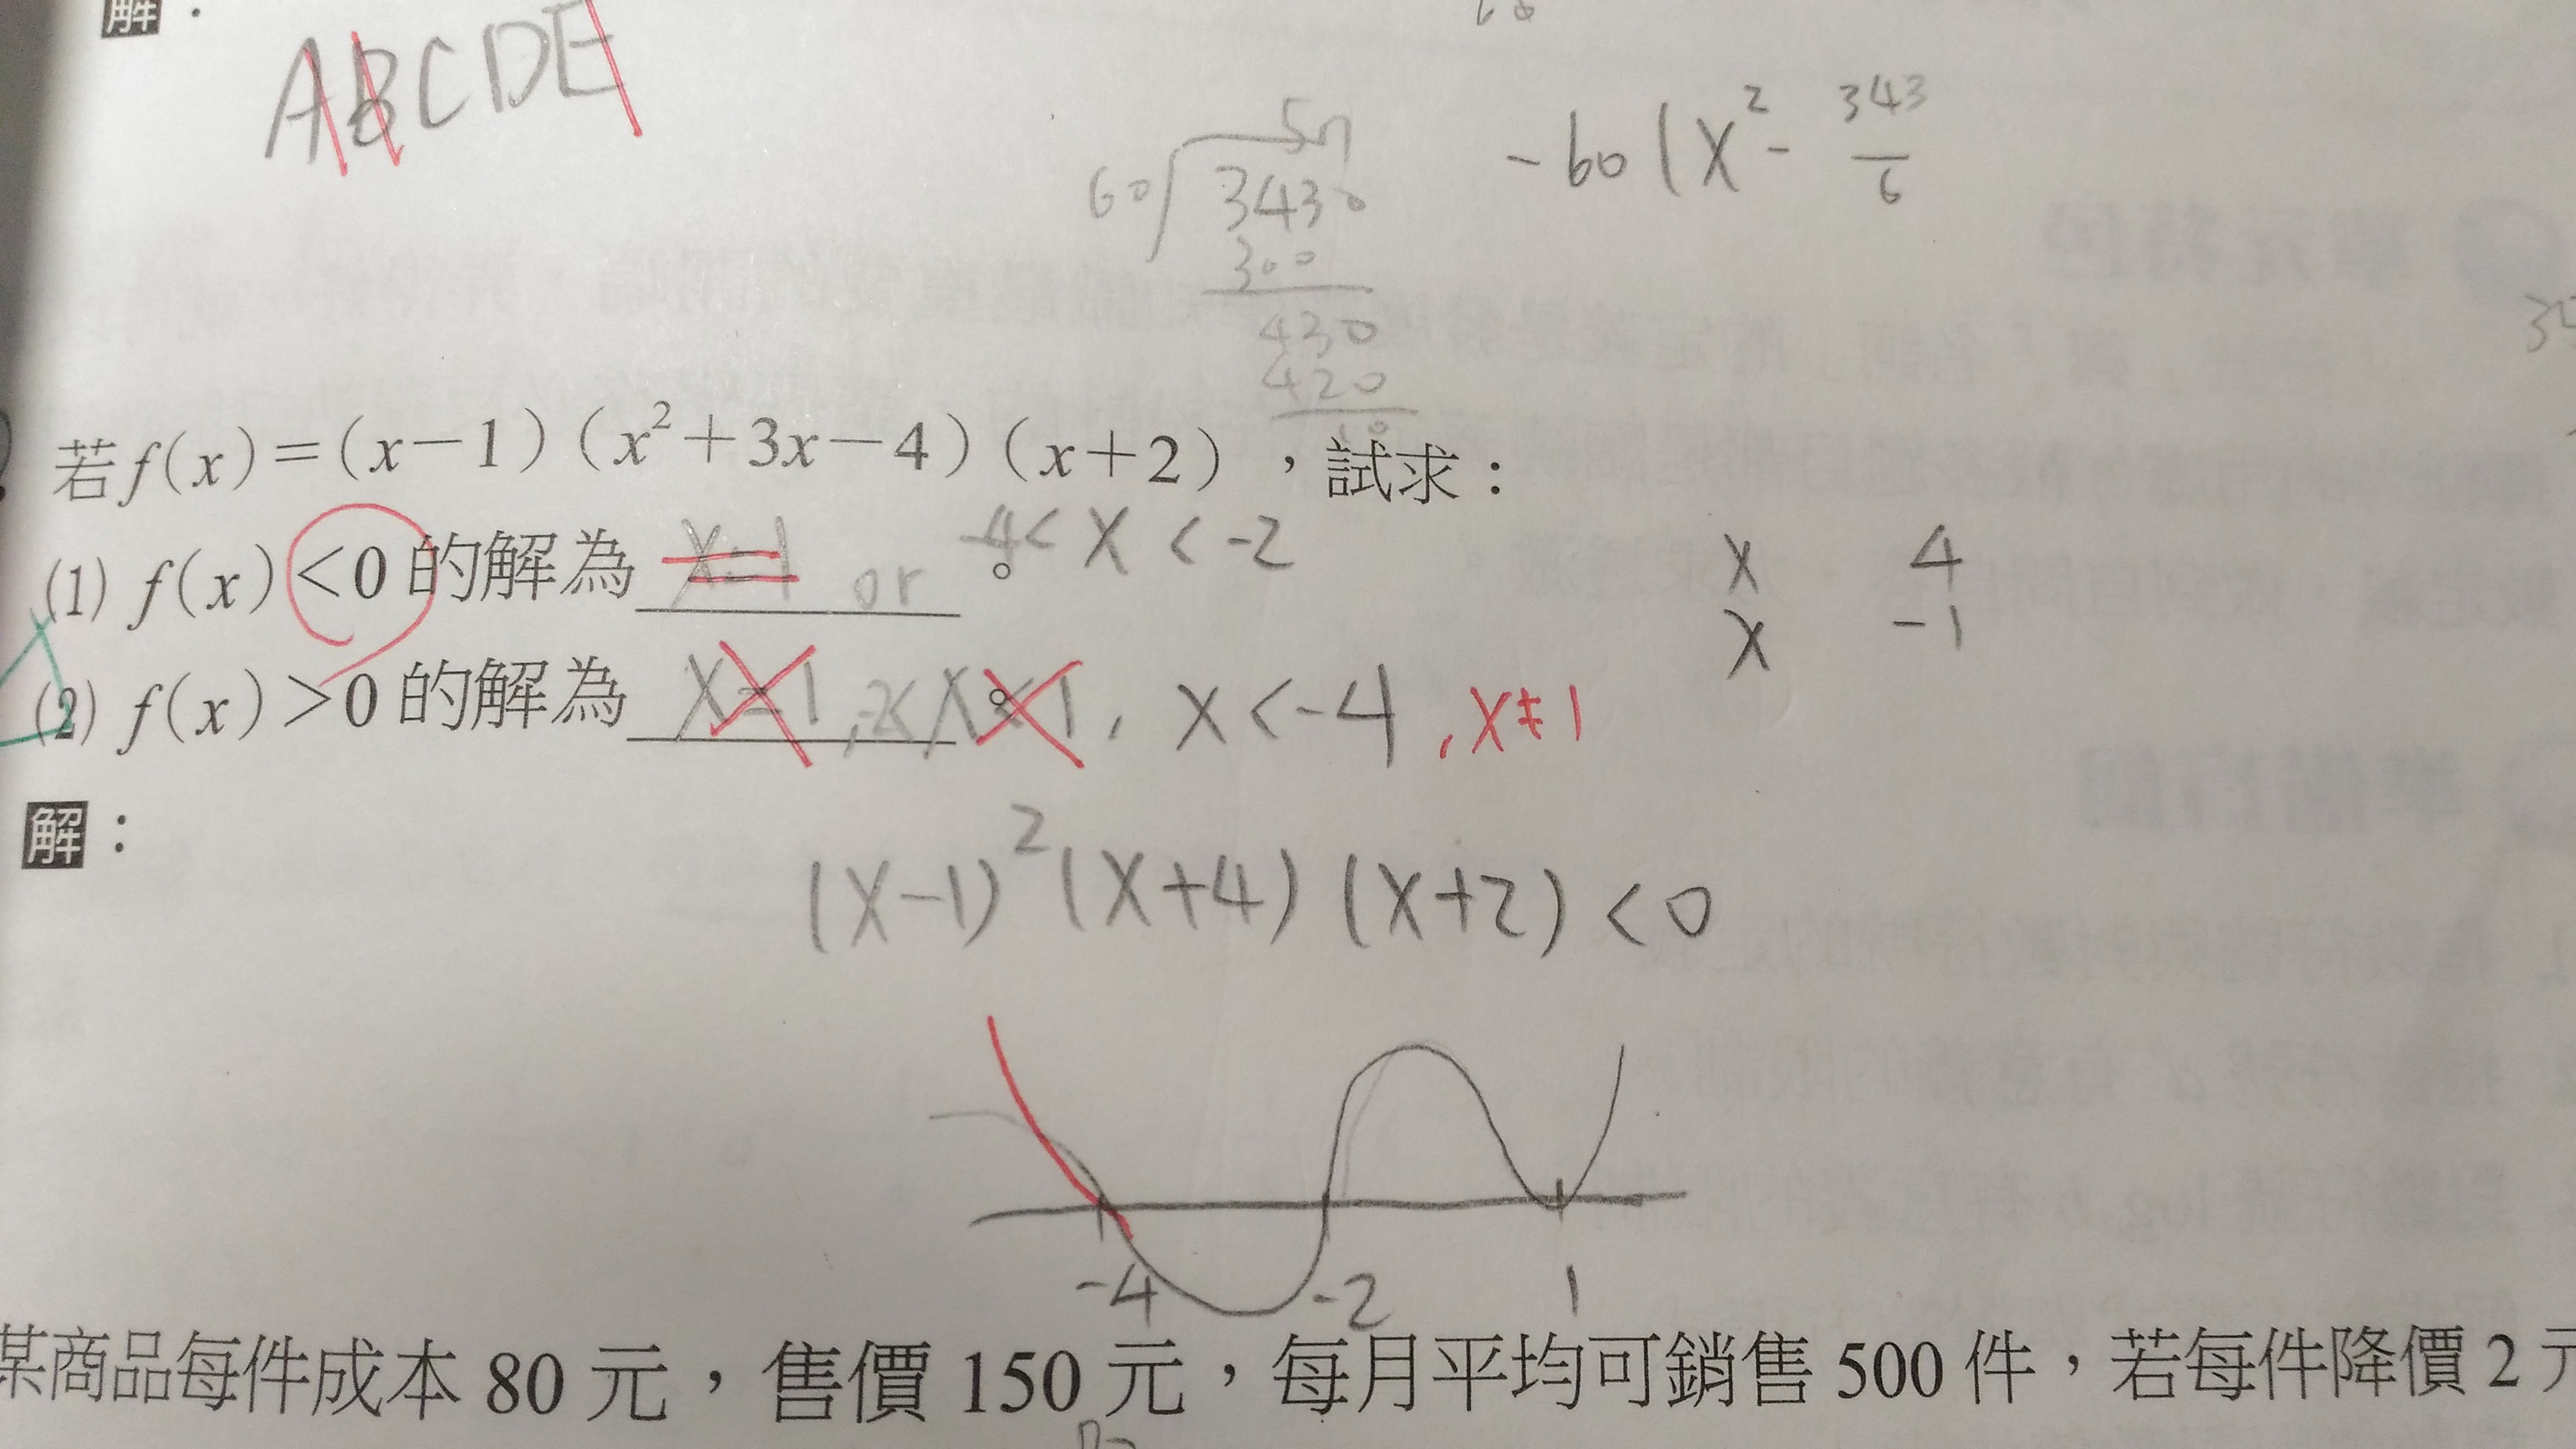 解：
ABCDE
57
60 3430
300
430
420
10
-60(x²- 343/6
若f(x)=(x-1)(x²+3x-4)(x+2)，試求：
(1) f(x)<0的解為 x=1 or 。 -4<x<-2
x 4
x -1
(2) f(x)>0的解為 x=1, -2<x<1 。, x<-4, x≠1
解：
(x-1)²(x+4)(x+2)<0
-4 -2 1
某商品每件成本80元，售價150元，每月平均可銷售500件，若每件降價2元